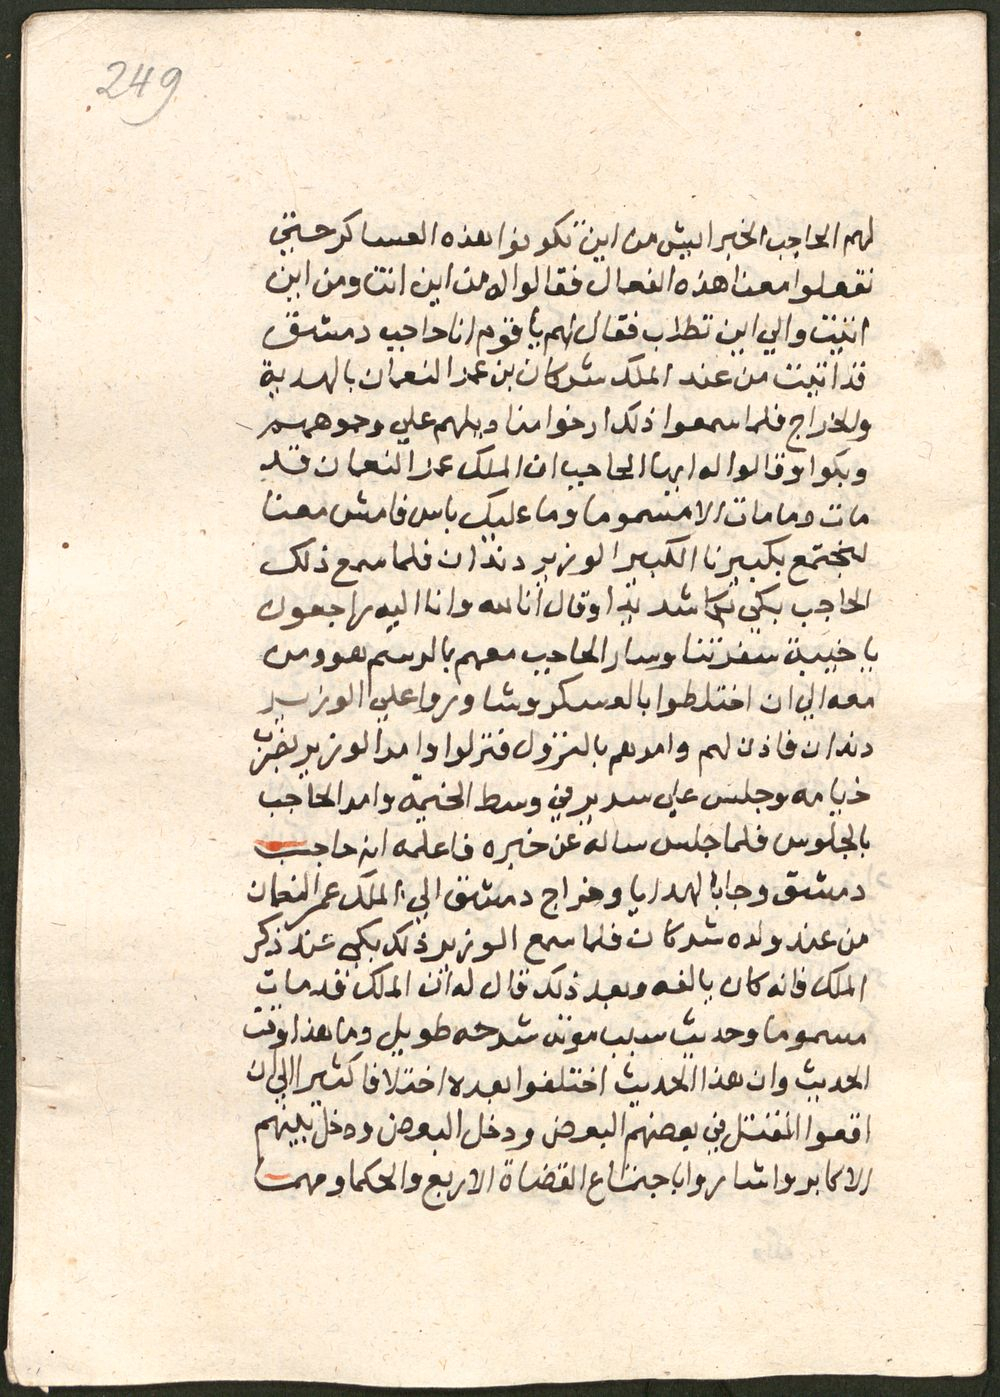 249
لهم الحاجب الخبر ايش من اين تكونوا بهذه العساكر حتى
تفعلوا معنا هذه الفعال فقالوا له من اين انت ومن اين
اتيت والي اين تطلب فقال لهم يا قوم انا حاجب دمشق
قد اتيت من عند الملك شركان بن عمر النعمان بالهدية
والخراج فلما سمعوا ذلك ارخوا مناديلهم علي وجوههم
وبكوا وقالوا له ايها الحاجب ان الملك عمر النعمان قد
مات وما مات الا مسموما وما عليك باس فامش معنا
لتجتمع بكبيرنا الكبير الوزير دندان فلما سمع ذلك
الحاجب بكي بكا شديدا وقال انا لله وانا اليه راجعون
يا خيبة سفرتنا وسار الحاجب معهم بالرسم هو ومن
معه الي ان اختلطوا بالعسكر وشاوروا علي الوزير
دندان فاذن لهم وامرهم بالنزول فنزلوا وامر الوزير بضرب
خيامه وجلس علي سرير في وسط الخيمة وامر الحاجب
بالجلوس فلما جلس ساله عن خبره فاعلمه انه حاجب
دمشق وجا بالهدايا وخراج دمشق الي الملك عمر النعمان
من عند ولده شركان فلما سمع الوزير ذلك بكي عند ذكر
الملك فانه كان يالفه وبعد ذلك قال له ان الملك قد مات
مسموما وحديث سبب موته شرحه طويل وما هذا وقت
الحديث وان هذا الحديث اختلفوا بعده اختلافا كثيرا الي ان
اقعوا القتل في بعضهم البعض ودخل البعض ودخل بينهم
الاكابر واشاروا باجتماع القضاة الاربع والحكما ومهما